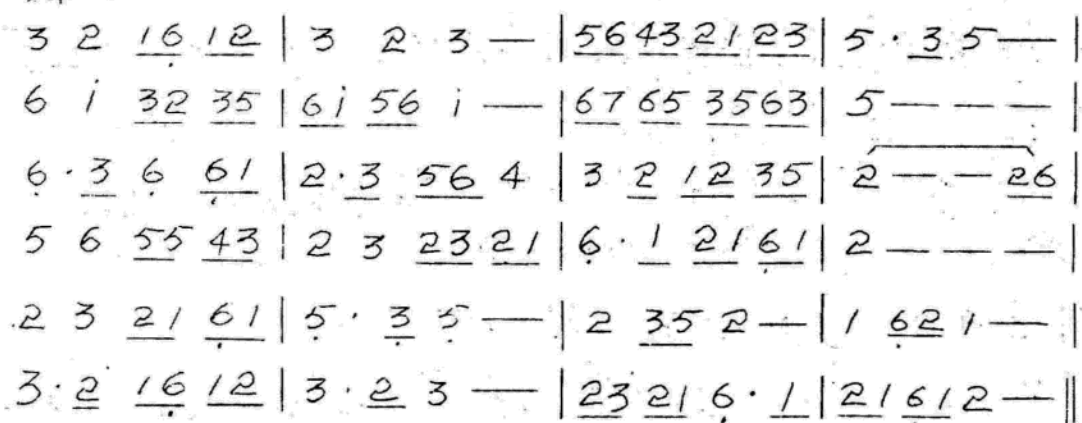 3 2 1̲6̲̣ 1̲2̲ | 3 2 3 — | 5̲6̲ 4̲3̲ 2̲1̲ 2̲3̲ | 5 · 3̲ 5 — |
6 i 3̲2̲ 3̲5̲ | 6̲i̲ 5̲6̲ i — | 6̲7̲ 6̲5̲ 3̲5̲ 6̲3̲ | 5 — — — |
6̣ · 3̲ 6̣ 6̲̣1̲ | 2 · 3̲ 5̲6̲ 4 | 3 2̲ 1̲2̲ 3̲5̲ | 2 — — 2̲6̲ |
5 6 5̲5̲ 4̲3̲ | 2 3 2̲3̲ 2̲1̲ | 6̣ · 1̲ 2̲1̲ 6̲̣1̲ | 2 — — — |
2 3 2̲1̲ 6̲̣1̲ | 5̣ · 3̲̣ 5̣ — | 2 3̲5̲ 2 — | 1 6̲̣2̲ 1 — |
3 · 2̲ 1̲6̲̣ 1̲2̲ | 3 · 2̲ 3 — | 2̲3̲ 2̲1̲ 6̣ · 1̲ | 2̲1̲ 6̲̣1̲ 2 — ‖